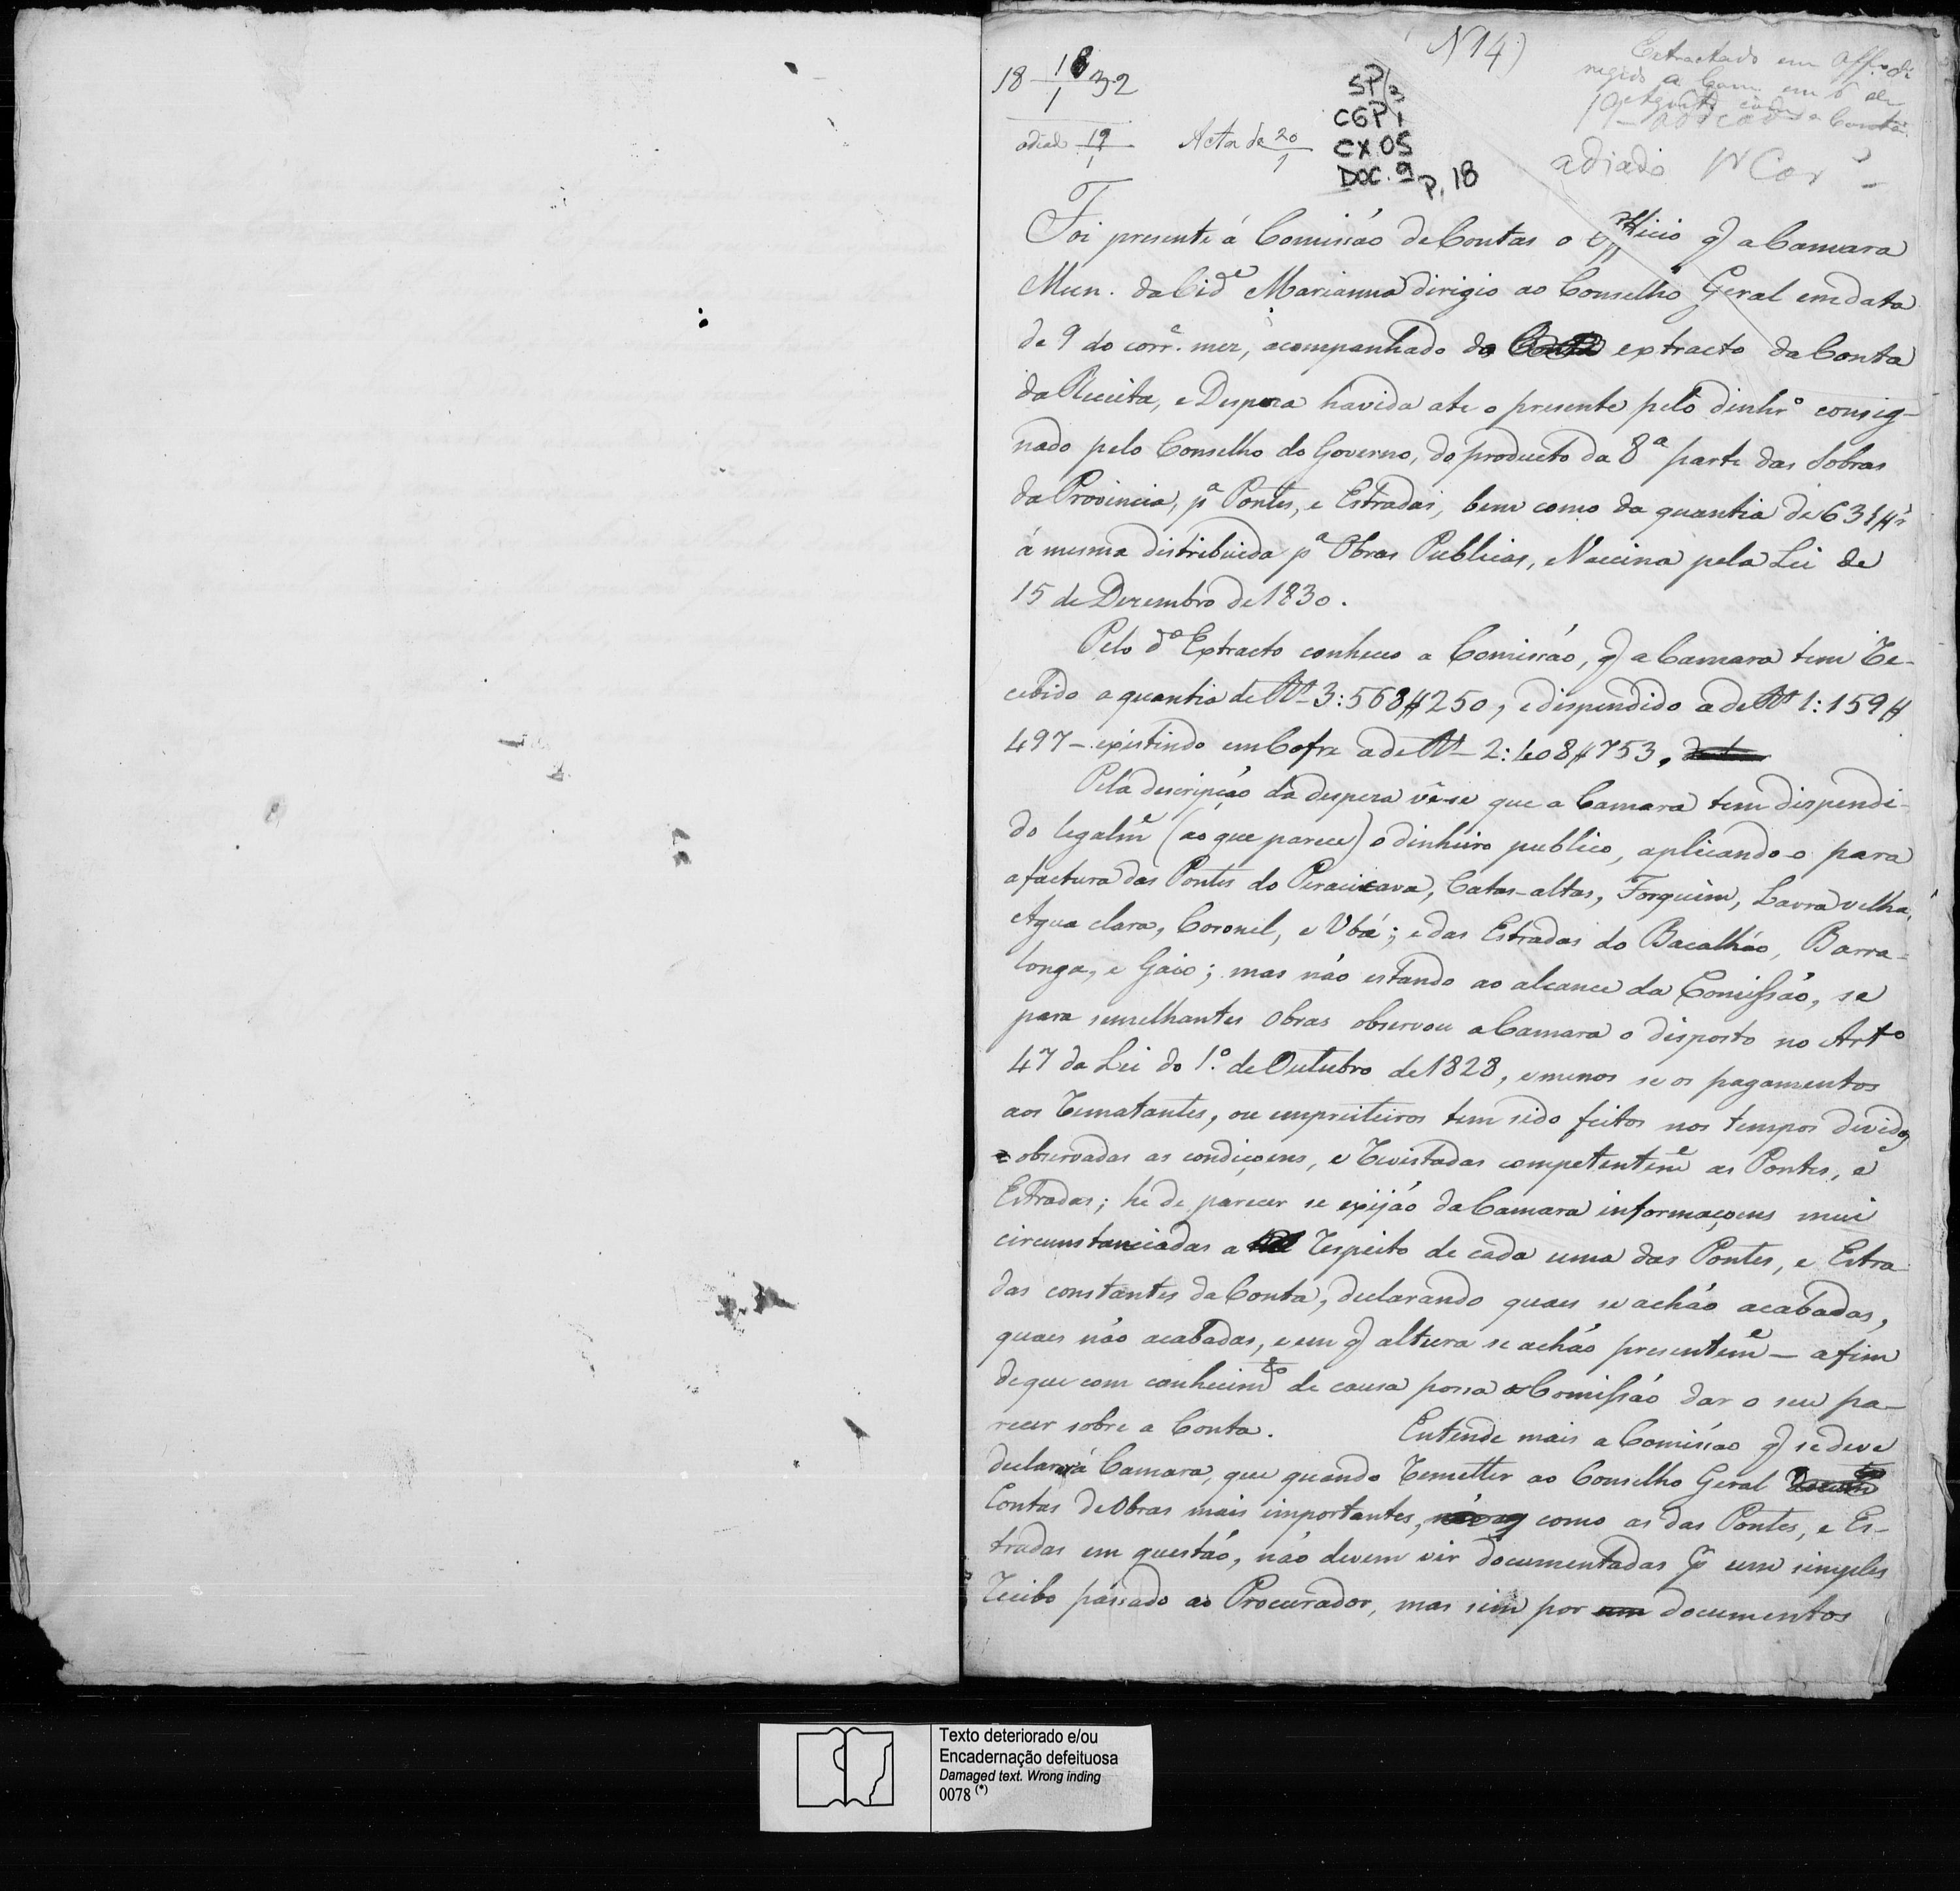 N 14)
18 16/1 32
adiado 19/1
Acta de 20/1
SP/3
CGP 1
CX. 05
DOC. 9 P. 18
Extractado em Off.º di
rigido a Cam. em 6 de
adiado
Foi presente á Comissão de Contas o Officio q̃ a Camara
Mun. da Cid.e Marianna dirigio ao Conselho Geral em data
de 9 do corr.e mez, acompanhado do extracto da Conta
da Receita, e Despeza havida ate o presente pelo dinhr.º consig-
nado pelo Conselho do Governo, do producto da 8.ª parte das Sobras
da Provincia, p.ª Pontes, e Estradas, bem como da quantia de
á mesma distribuida p.ª Obras Publicas, e Vaccina pela Lei de
15 de Dezembro de 1830.
Pelo d.º Extracto conheceo a Comissão, q̃ a Camara tem Re-
cebido a quantia de Rs 3:568$250, e dispendido a de Rs 1:159$
497 - existindo em Cofre a de Rs - 2:408$753,
Pela descripção da despeza vê-se que a Camara tem dispendi-
do legalm.e (ao que parece) o dinheiro publico, aplicando-o para
a factura das Pontes do Peracicava, Catas-altas, Forquim, Lavra velha,
Agua clara, Coronel, e Ubá; e das Estradas do Bacalháo, Barra-
longa, e Gaio; mas não estando ao alcance da Comissão, se
para semelhantes Obras observou a Camara o disposto no Art.º
47 da Lei do 1.º de Outubro de 1828, e menos se os pagamentos
aos Rematantes, ou empreiteiros tem sido feitos nos tempos devidos
e observadas as condiçoens, e Revistadas competentem.e as Pontes, e
Estradas; he de parecer se exijão da Camara informaçoens mui
circunstanciadas a Respeito de cada uma das Pontes, e Estra-
das constantes da Conta, declarando quaes se achão acabadas,
quaes não acabadas, e em q̃ altura se achão presentem.e - afim
de que com conhecim.to de causa possa a Comissão dar o seu pa-
recer sobre a Conta. Entende mais a Comissão q̃ se deve
declarar á Camara, que quando Remetter ao Conselho Geral
Contas de Obras mais importantes, como as das Pontes, e Es-
tradas em questão, não devem vir documentadas p um simples
Recibo passado ao Procurador, mas sim por um documentos
Texto deteriorado e/ou
Encadernação defeituosa
Damaged text. Wrong inding
0078 (*)